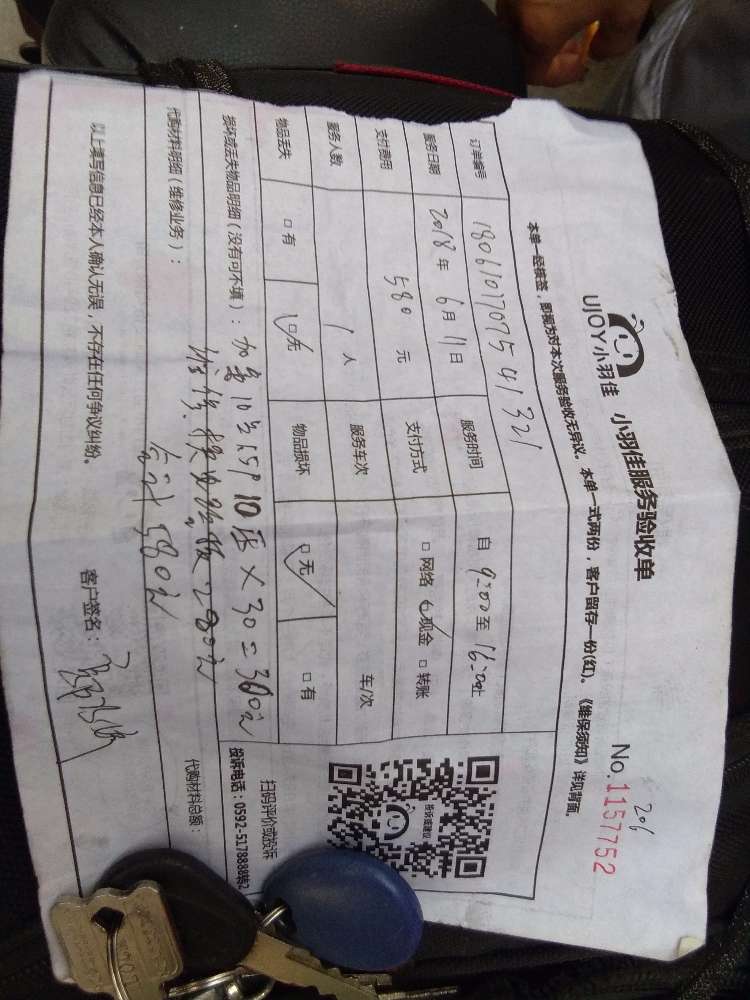 UJOY小羽佳 小羽佳服务验收单
No.1157752
206
本单一经核签，即视为对本次服务验收无异议。本单一式两份，客户留存一份(红)。《维保须知》详见背面。
订单编号 180610170754 1321
服务日期 2018年6月11日 服务时间 自9:00至16:00止
支付费用 580元 支付方式 □网络 ☑现金 □转账
服务人数 1人 服务车次 车/次
物品丢失 □有 ☑无 物品损坏 ☑无 □有
投诉或建议
扫码评价或投诉
投诉电话：0592-5178888转2
损坏或丢失物品明细（没有可不填）：加氟10压×30=300元
维修 换电脑板280元
合计580元
代购材料明细（维修业务）： 代购材料总额：
以上填写信息已经本人确认无误，不存在任何争议纠纷。 客户签名：